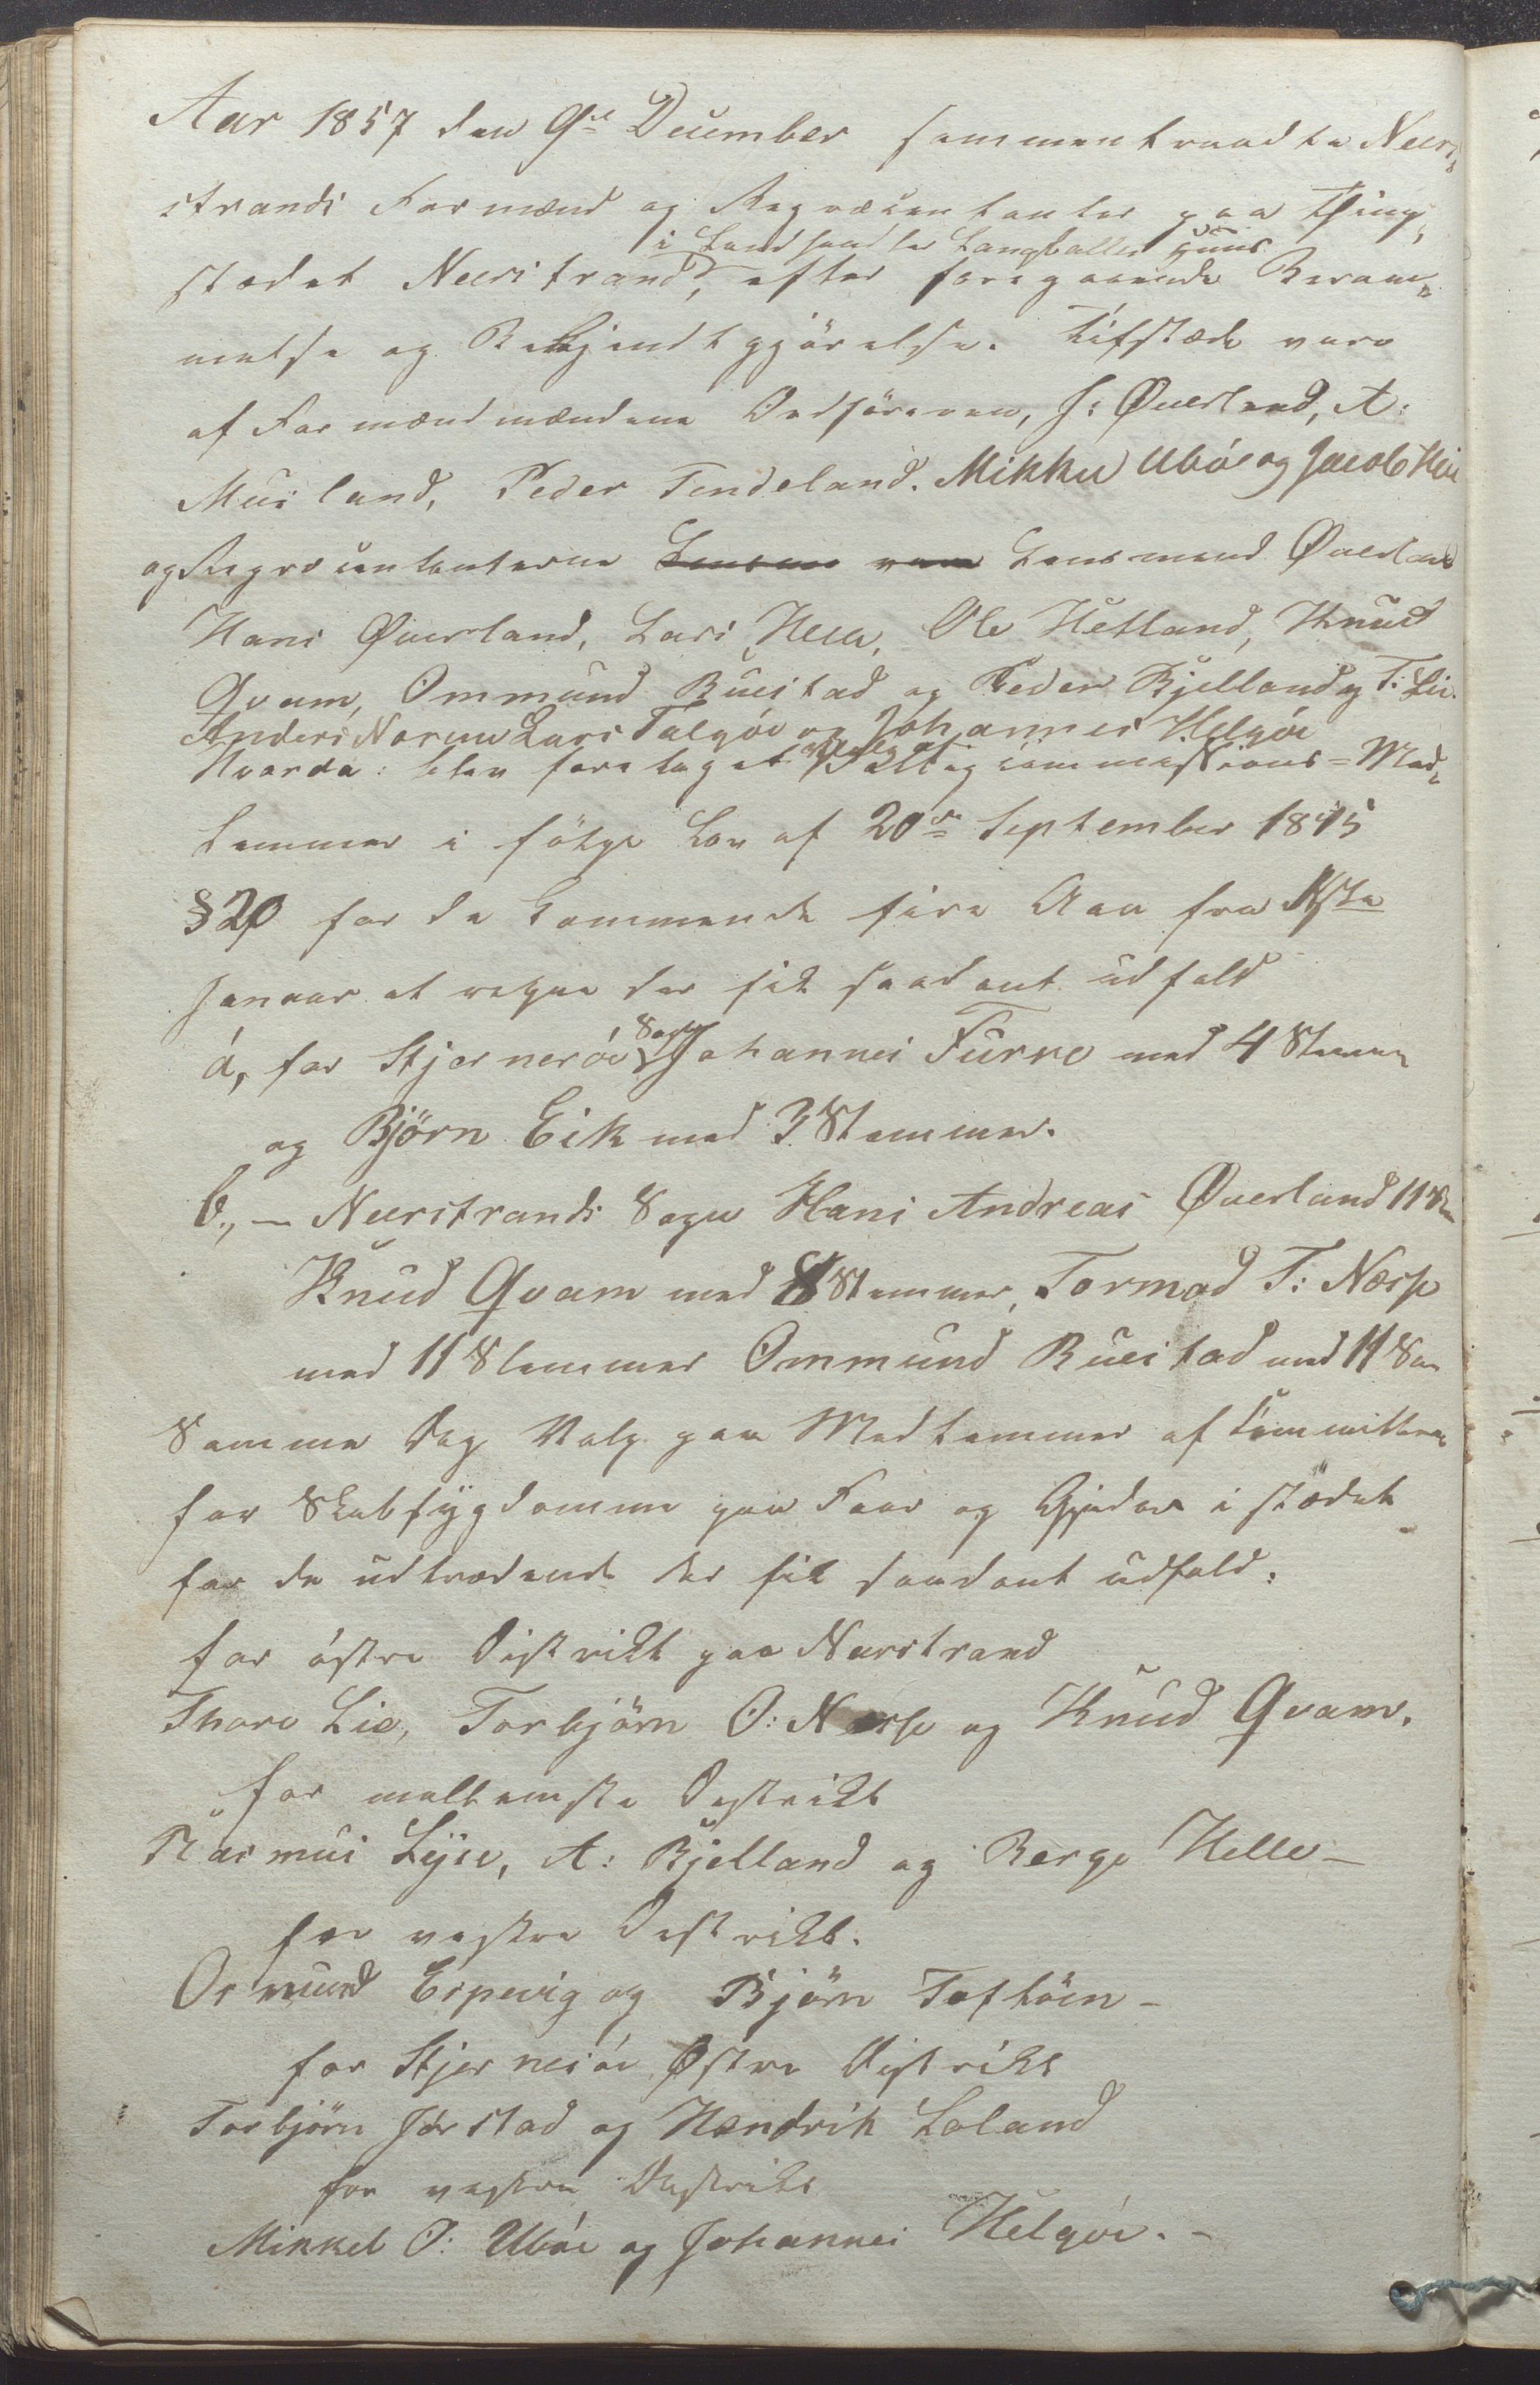 Aar 1857 den 9de December sammentraadte Neer,
strands Formænd og Repræsentanter paa Thing,
i Landhandler Langballes Huus
stædet Neerstrand, efter foregaaende Beram,
melse og Bekjendtgjörelse. Tilstæde vare
af Formændmændene Ordföreren, J: Øverland, A:
Musland, Peder Tendeland. Mikkel Uböe og Jacob Hei
og Repræsentanterne Lensmand Øverland
Hans Øverland, Lars Heia, Ole Hetland, Knud
Qvam, Ommund Buestad og Peder Bjelland og T: Lie
Anders Narum Lars Talgöe og Johannes Helgöe
Hvorda: blev foretaget Valg af Fattigcommissions=Med,
lemmer i fölge Lov af 20de September 1845
§20 for de kommende fire Aar fra 1ste
Januar at regne der fik saadant udfald
á, for Stjerneröe Sogn Johannes Furre med 4 Stemmer
og Björn Eik med 3 Stemmer.
b., — Neerstrands Sogn Hans Andreas Øverland 11 St
Knud Qvam med 8 Stemmer, Tormod T: Næsse
med 11 Stemmer Ommund Buestad med 11 St
Samme Dag Valg paa Medlemmer af Committeen
for Skabsygdomme paa Faar og Gjeder i stædet
for de udtrædende der fik saadant udfald:
for östre Distrikt paa Neerstrand
Thore Lie, Torbjörn O: Næsse og Knud Qvam.
for mellemste Destrikt
Rasmus Lyse, A: Bjelland og Berge Helle —
for vestre Destrikt.
Osmund Espevig og Björn Toftöen —
for Stjernesöe Østre Distrikt
Torbjörn Jörstad og Hendrik Loland
for vestre Destrikt
Mikkel O: Uböe og Johannes Helgöe. —